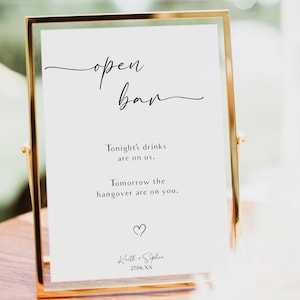 open
bar
Tonight's drinks
are on us.
Tomorrow the
hangover are on you.
Keith & Sophia
27.06.NN.